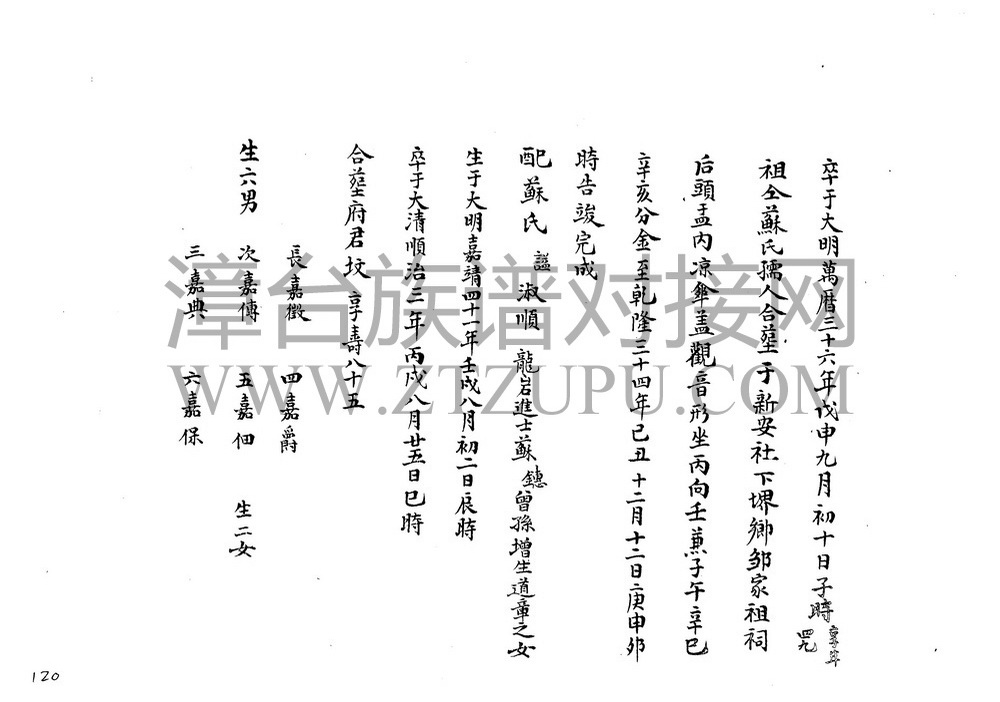 卒于大明萬曆三十六年戊申九月初十日子時 享年四九
祖仝蘇氏孺人合塟于新安社下堺鄉邹家祖祠
后頭孟内凉傘盖觀音形坐丙向壬兼子午辛巳
辛亥分金至乾隆三十四年己丑十二月十二日庚申卯
時告竣完成
配蘇氏 謚 淑順 龍岩進士蘇鏸曾孫增生道章之女
生于大明嘉靖四十一年壬戌八月初二日辰時
卒于大清順治三年丙戌八月廿五日巳時
合塟府君坟 享壽八十五
長嘉徵 四嘉爵
生六男 次嘉傳 五嘉佃 生二女
三嘉典 六嘉保
120
漳台族谱对接网
WWW.ZTZUPU.COM